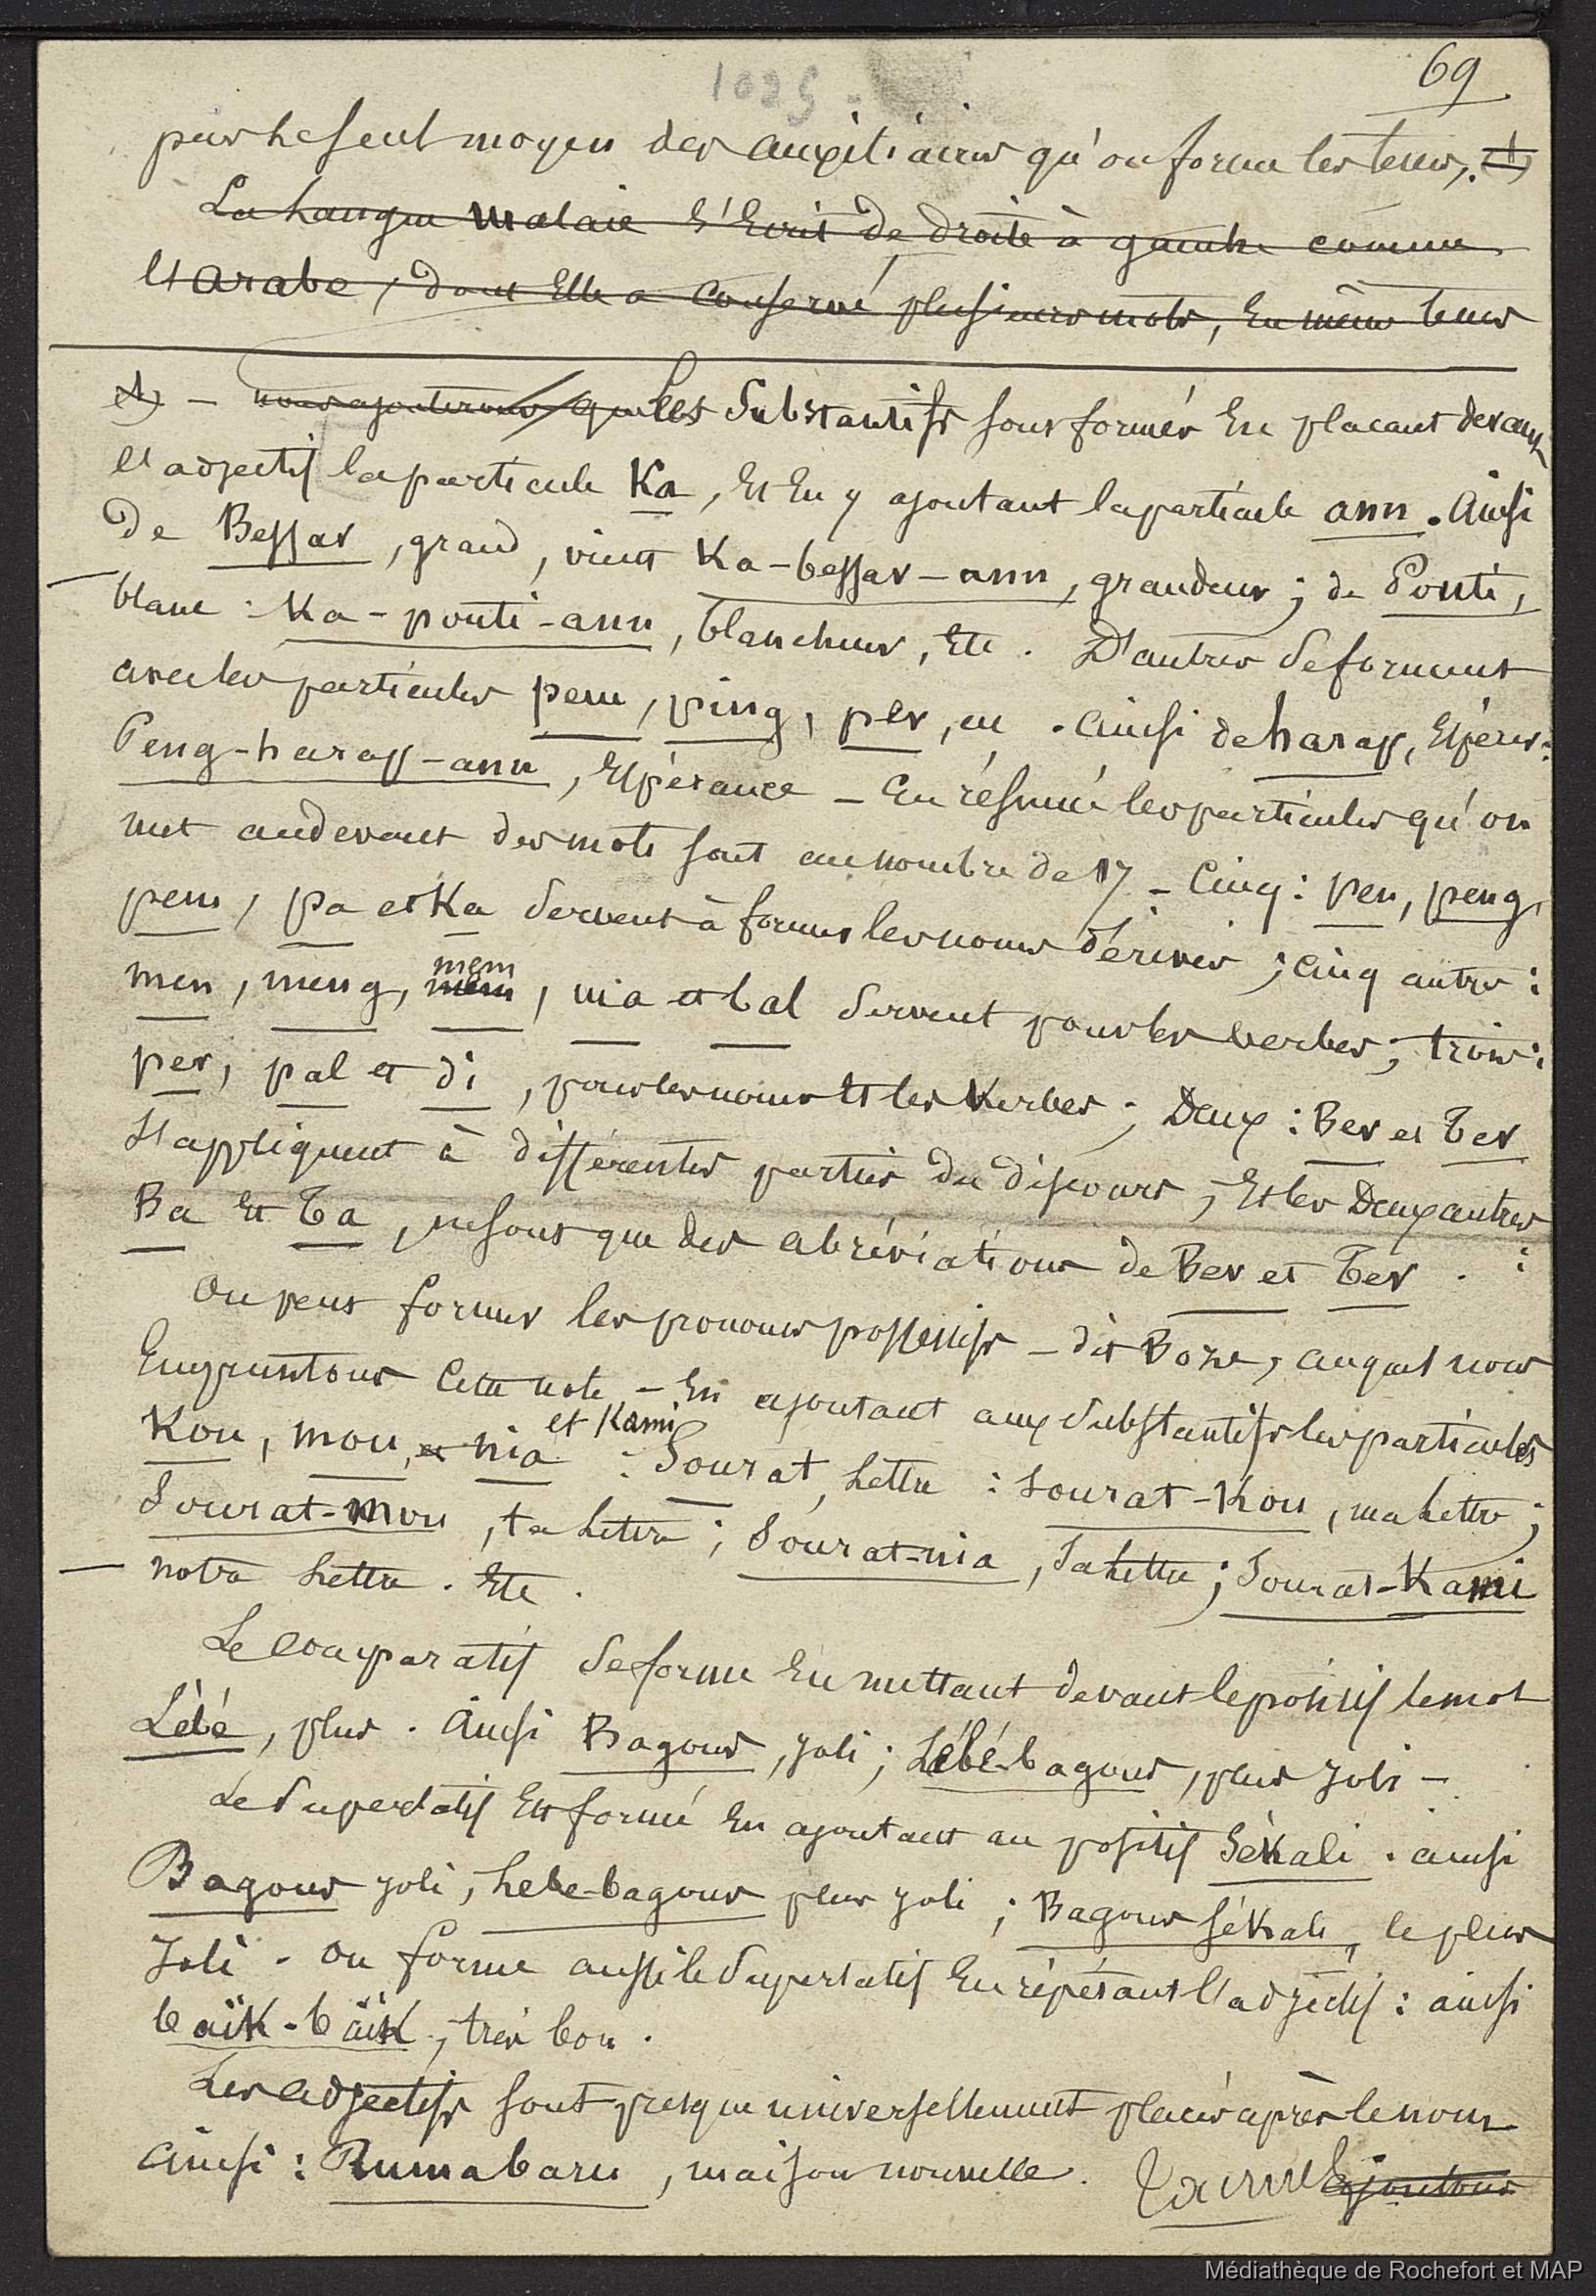 69
1025
par le seul moyen des auxiliaires qu'on forme les tems,. (1)
La langue malaie s'écrit de droite à gauche comme
l'arabe, dont elle a conservé plusieurs mots, En même tems
(1) — nous ajouterons que les Substantifs sont formés En placant devant
l'adjectif la particule Ka, Et En y ajoutant la particule ann. Ainsi
De Bessar, grand, vient Ka-bessar-ann, grandeur; de Pouti,
blanc : Ka-pouti-ann, blancheur, Etc. D'autres se forment
avec les particules pem, ping, per, etc. Ainsi de harap, Espérer:
Peng-harap-ann, Espérance — En résumé les particules qu'on
met audevant des mots sont au nombre de 17 — Cinq: pen, peng,
pem, pa et Ka servent à former les noms dérivés; cinq autres:
men, meng, mem mem, nia et bal servent pour les verbes; trois:
per, pal et di, pour les noms Et les Verbes; Deux: Ber et Ter
s'appliquent à différentes parties du discours; Et les Deux autres
Ba Et Ta, ne sont que des abréviations de Ber et Ter.
On peut former les pronoms possessifs — dit Boze, auquel nous
Empruntons Cette note — En ajoutant aux substantifs les particules
Kou, mou, et nia et Kami : Sourat, Lettre : Sourat-Kou, ma Lettre;
Sourat-mou, ta Lettre; Sourat-nia, Sa Lettre; Sourat-Kami
notre Lettre. Etc.
Le Comparatif se forme En mettant devant le positif le mot
Lébé, plus. Ainsi Bagous, joli; Lébé-bagous, plus joli —
Le Superlatif Est formé En ajoutant au positif Sékali. ainsi
Bagous joli, Lebe-bagous plus joli; Bagous sékali, le plus
Joli. On forme aussi le Superlatif En répétant l'adjectif : ainsi
baïk-baïk, très bon.
Les adjectifs sont presque universellement placés après le nom
Ainsi : Ruma baru, maison nouvelle. ajoutons
Médiathèque de Rochefort et MAP